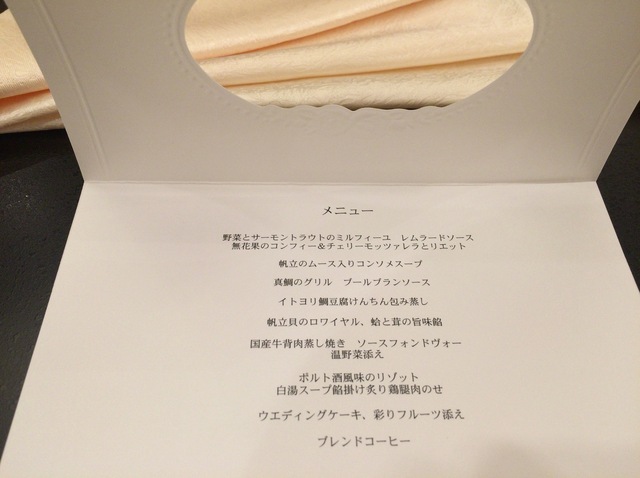 メニュー
野菜とサーモントラウトのミルフィーユ　レムラードソース
無花果のコンフィー＆チェリーモッツァレラとリエット
帆立のムース入りコンソメスープ
真鯛のグリル　ブールブランソース
イトヨリ鯛豆腐けんちん包み蒸し
帆立貝のロワイヤル、蛤と茸の旨味餡
国産牛背肉蒸し焼き　ソースフォンドヴォー
温野菜添え
ポルト酒風味のリゾット
白湯スープ餡掛け炙り鶏腿肉のせ
ウエディングケーキ、彩りフルーツ添え
ブレンドコーヒー